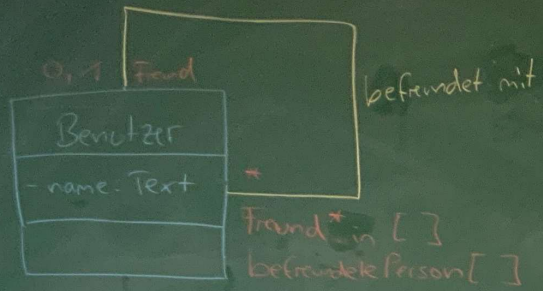 0, 1 Freund
befreundet mit
Benutzer
- name: Text
*
Freund*in [ ]
befreundete Person [ ]